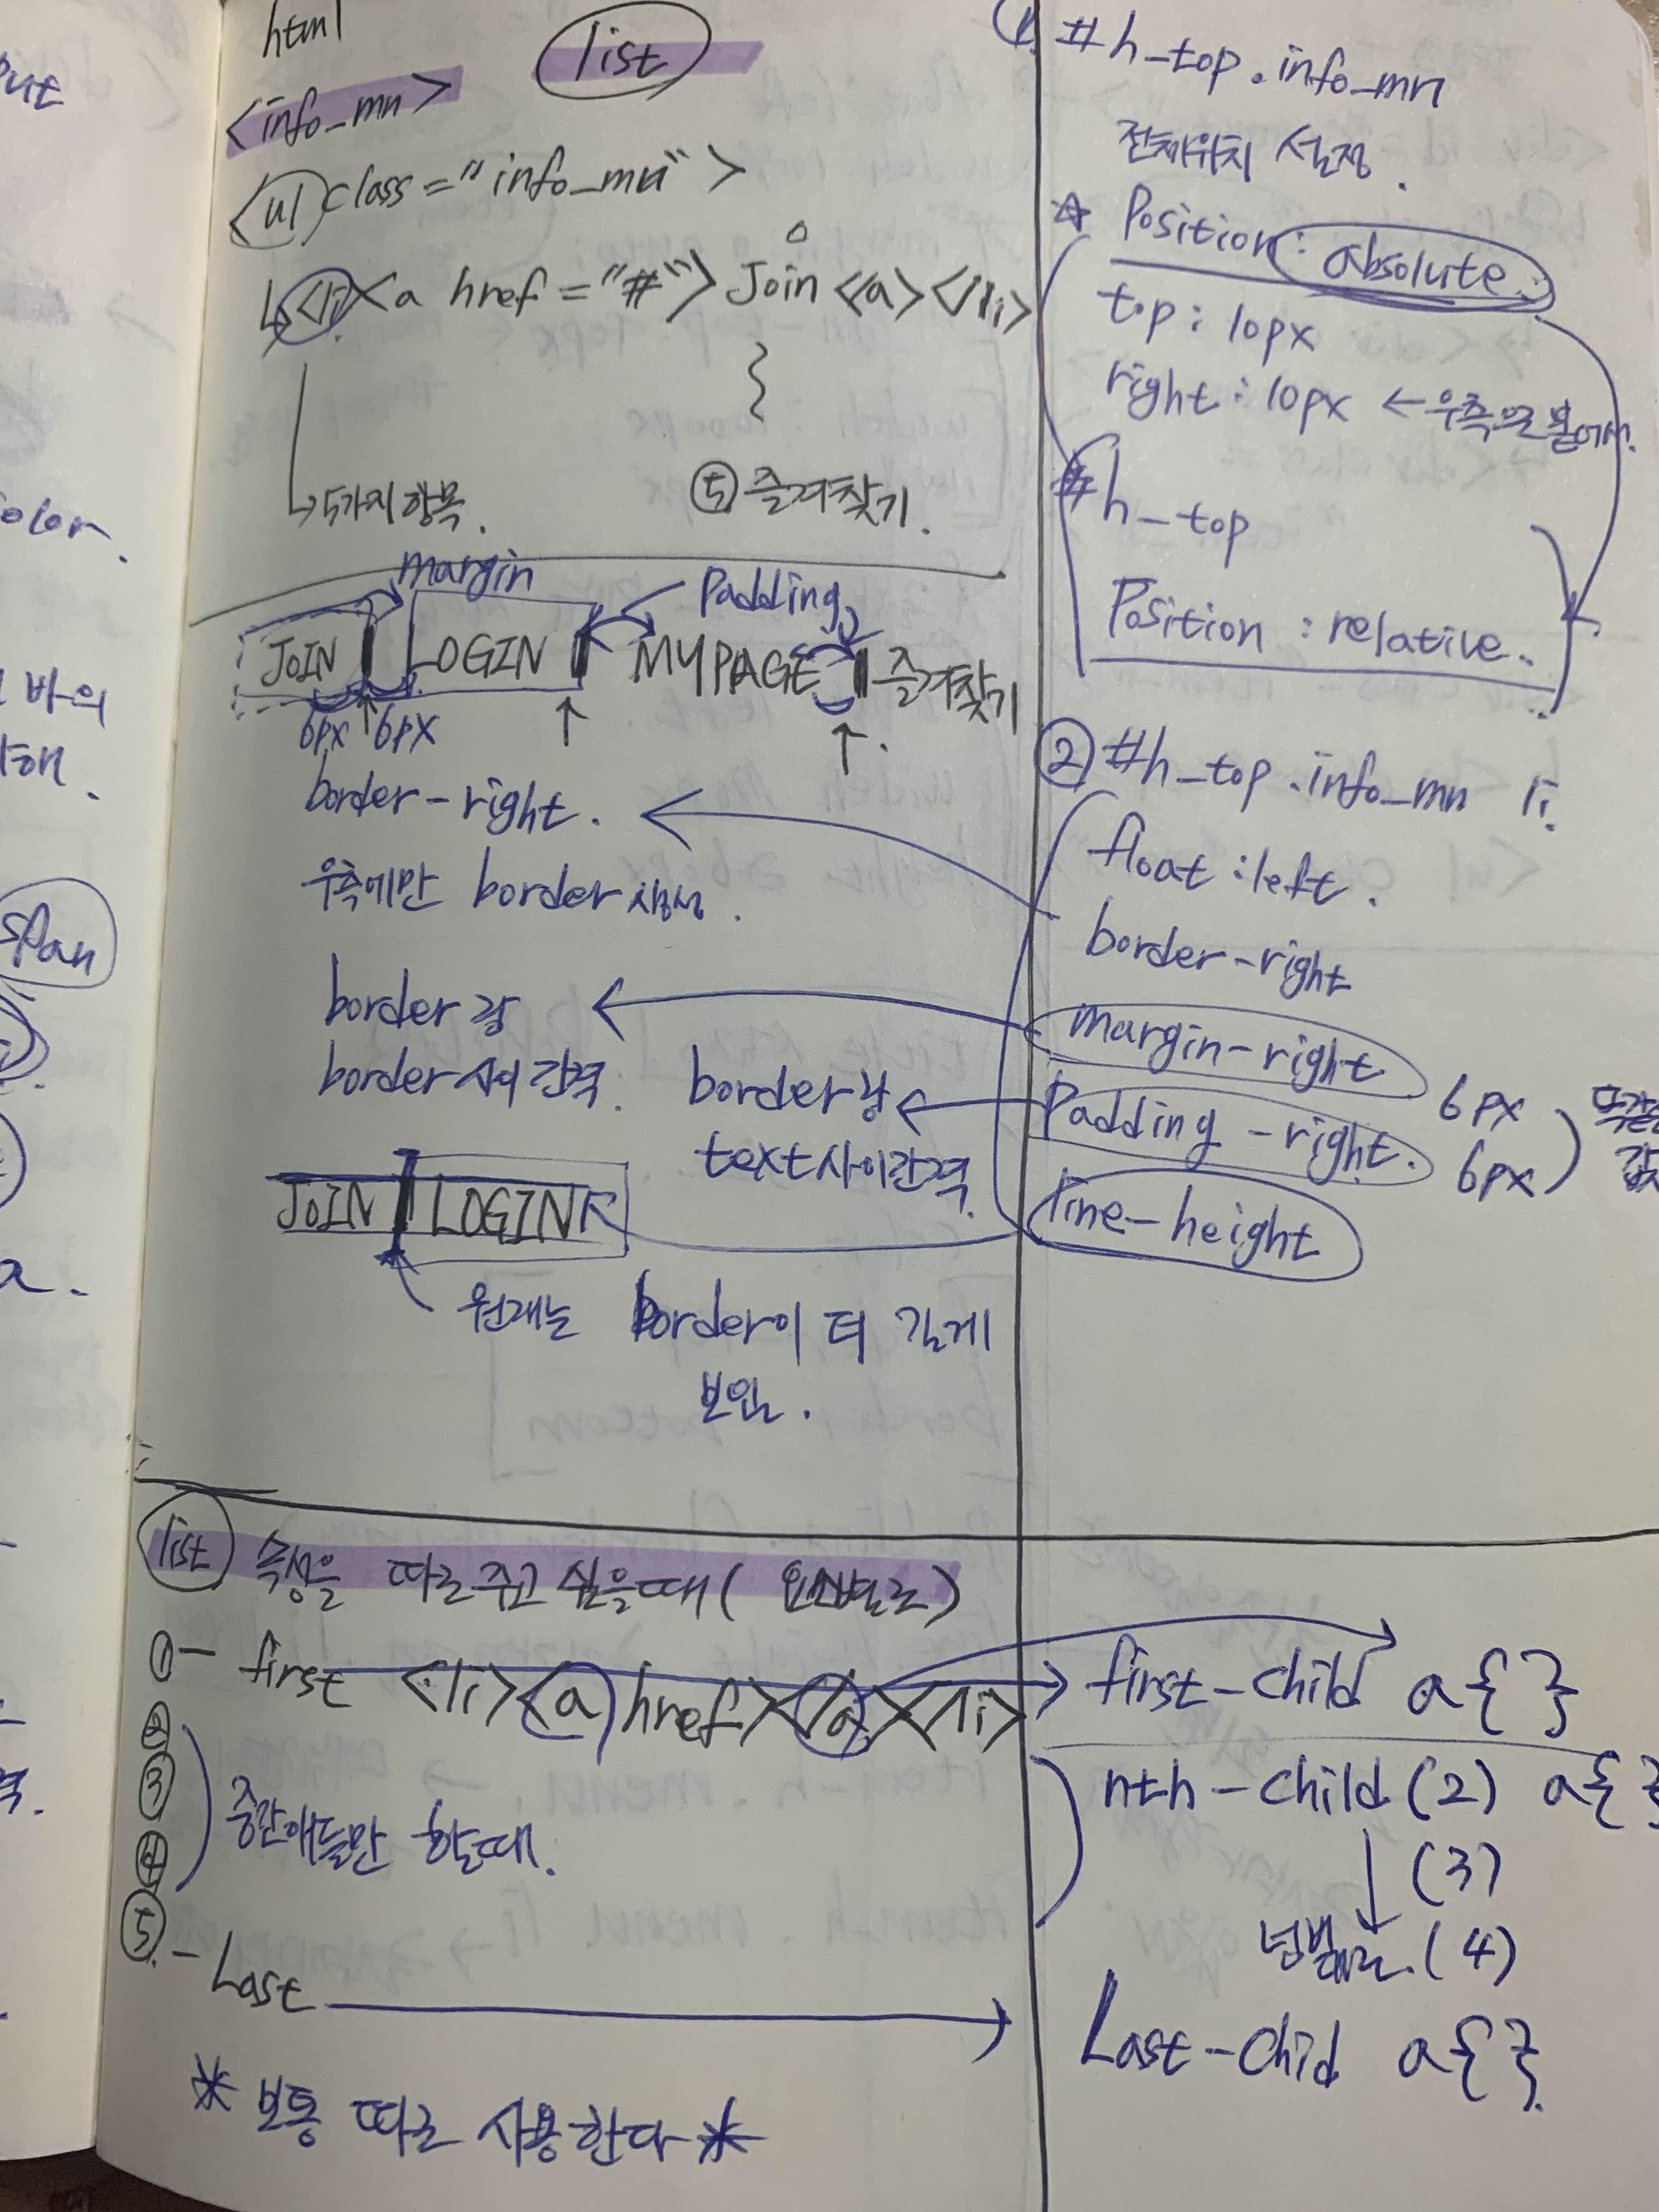 html
list
<info_mn>
<ul class="info_mn">
↳<li><a href="#">Join<a></li>
↳5가지 항목.
⑤ 즐겨찾기.
margin
Padding
JOIN LOGIN MYPAGE 즐겨찾기
6px 6px
border-right.
우측에만 border 생성.
border랑
border 사이 간격.
border랑
text 사이 간격.
JOIN LOGIN
원래는 border이 더 길게
보임.
list 속성을 따로 주고 싶을때 (요소별로)
①- first <li><a href></a></li>
②
③
④
중간애들만 할때.
⑤-Last
* 보통 따로 사용한다 *
1. #h_top.info_mn
전체위치 설정.
☆ Position: absolute.
top: 10px
right: 10px ←우측으로
#h_top
Position: relative.
② #h_top .info_mn li.
float:left.
border-right
margin-right 6px
Padding-right. 6px
line-height
first-child a{ }
nth-child (2) a{ }
(3)
(4)
Last-Child a{ }.
put
color.
바의
span
a.